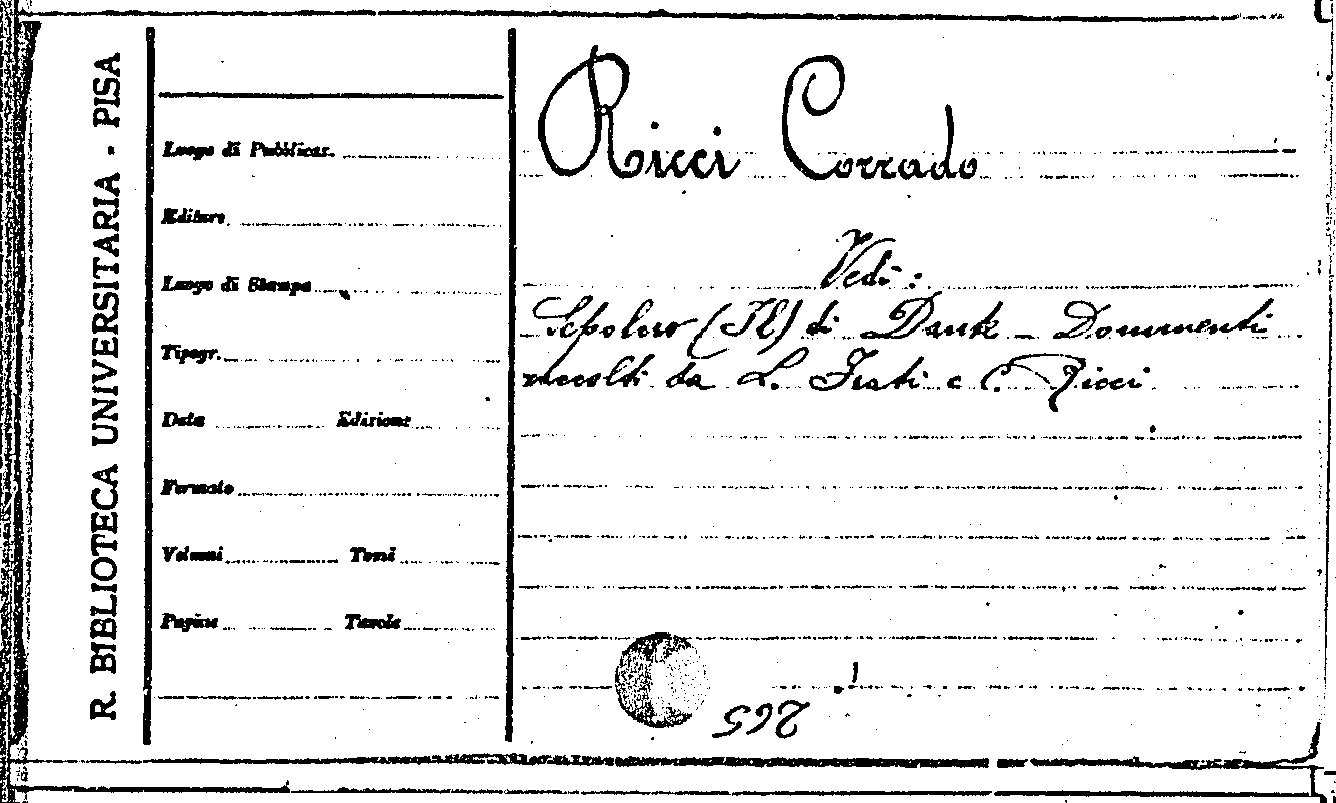 R. BIBLIOTECA UNIVERSITARIA - PISA
Luogo di Pubblicaz.
Editore
Luogo di Stampa
Tipogr.
Data Edizione
Formato
Volumi Tomi
Pagine Tavole
Ricci Corrado
Vedi:
Sepolcro (Il) di Dante - Documenti
raccolti da L. Frati e C. Ricci
265